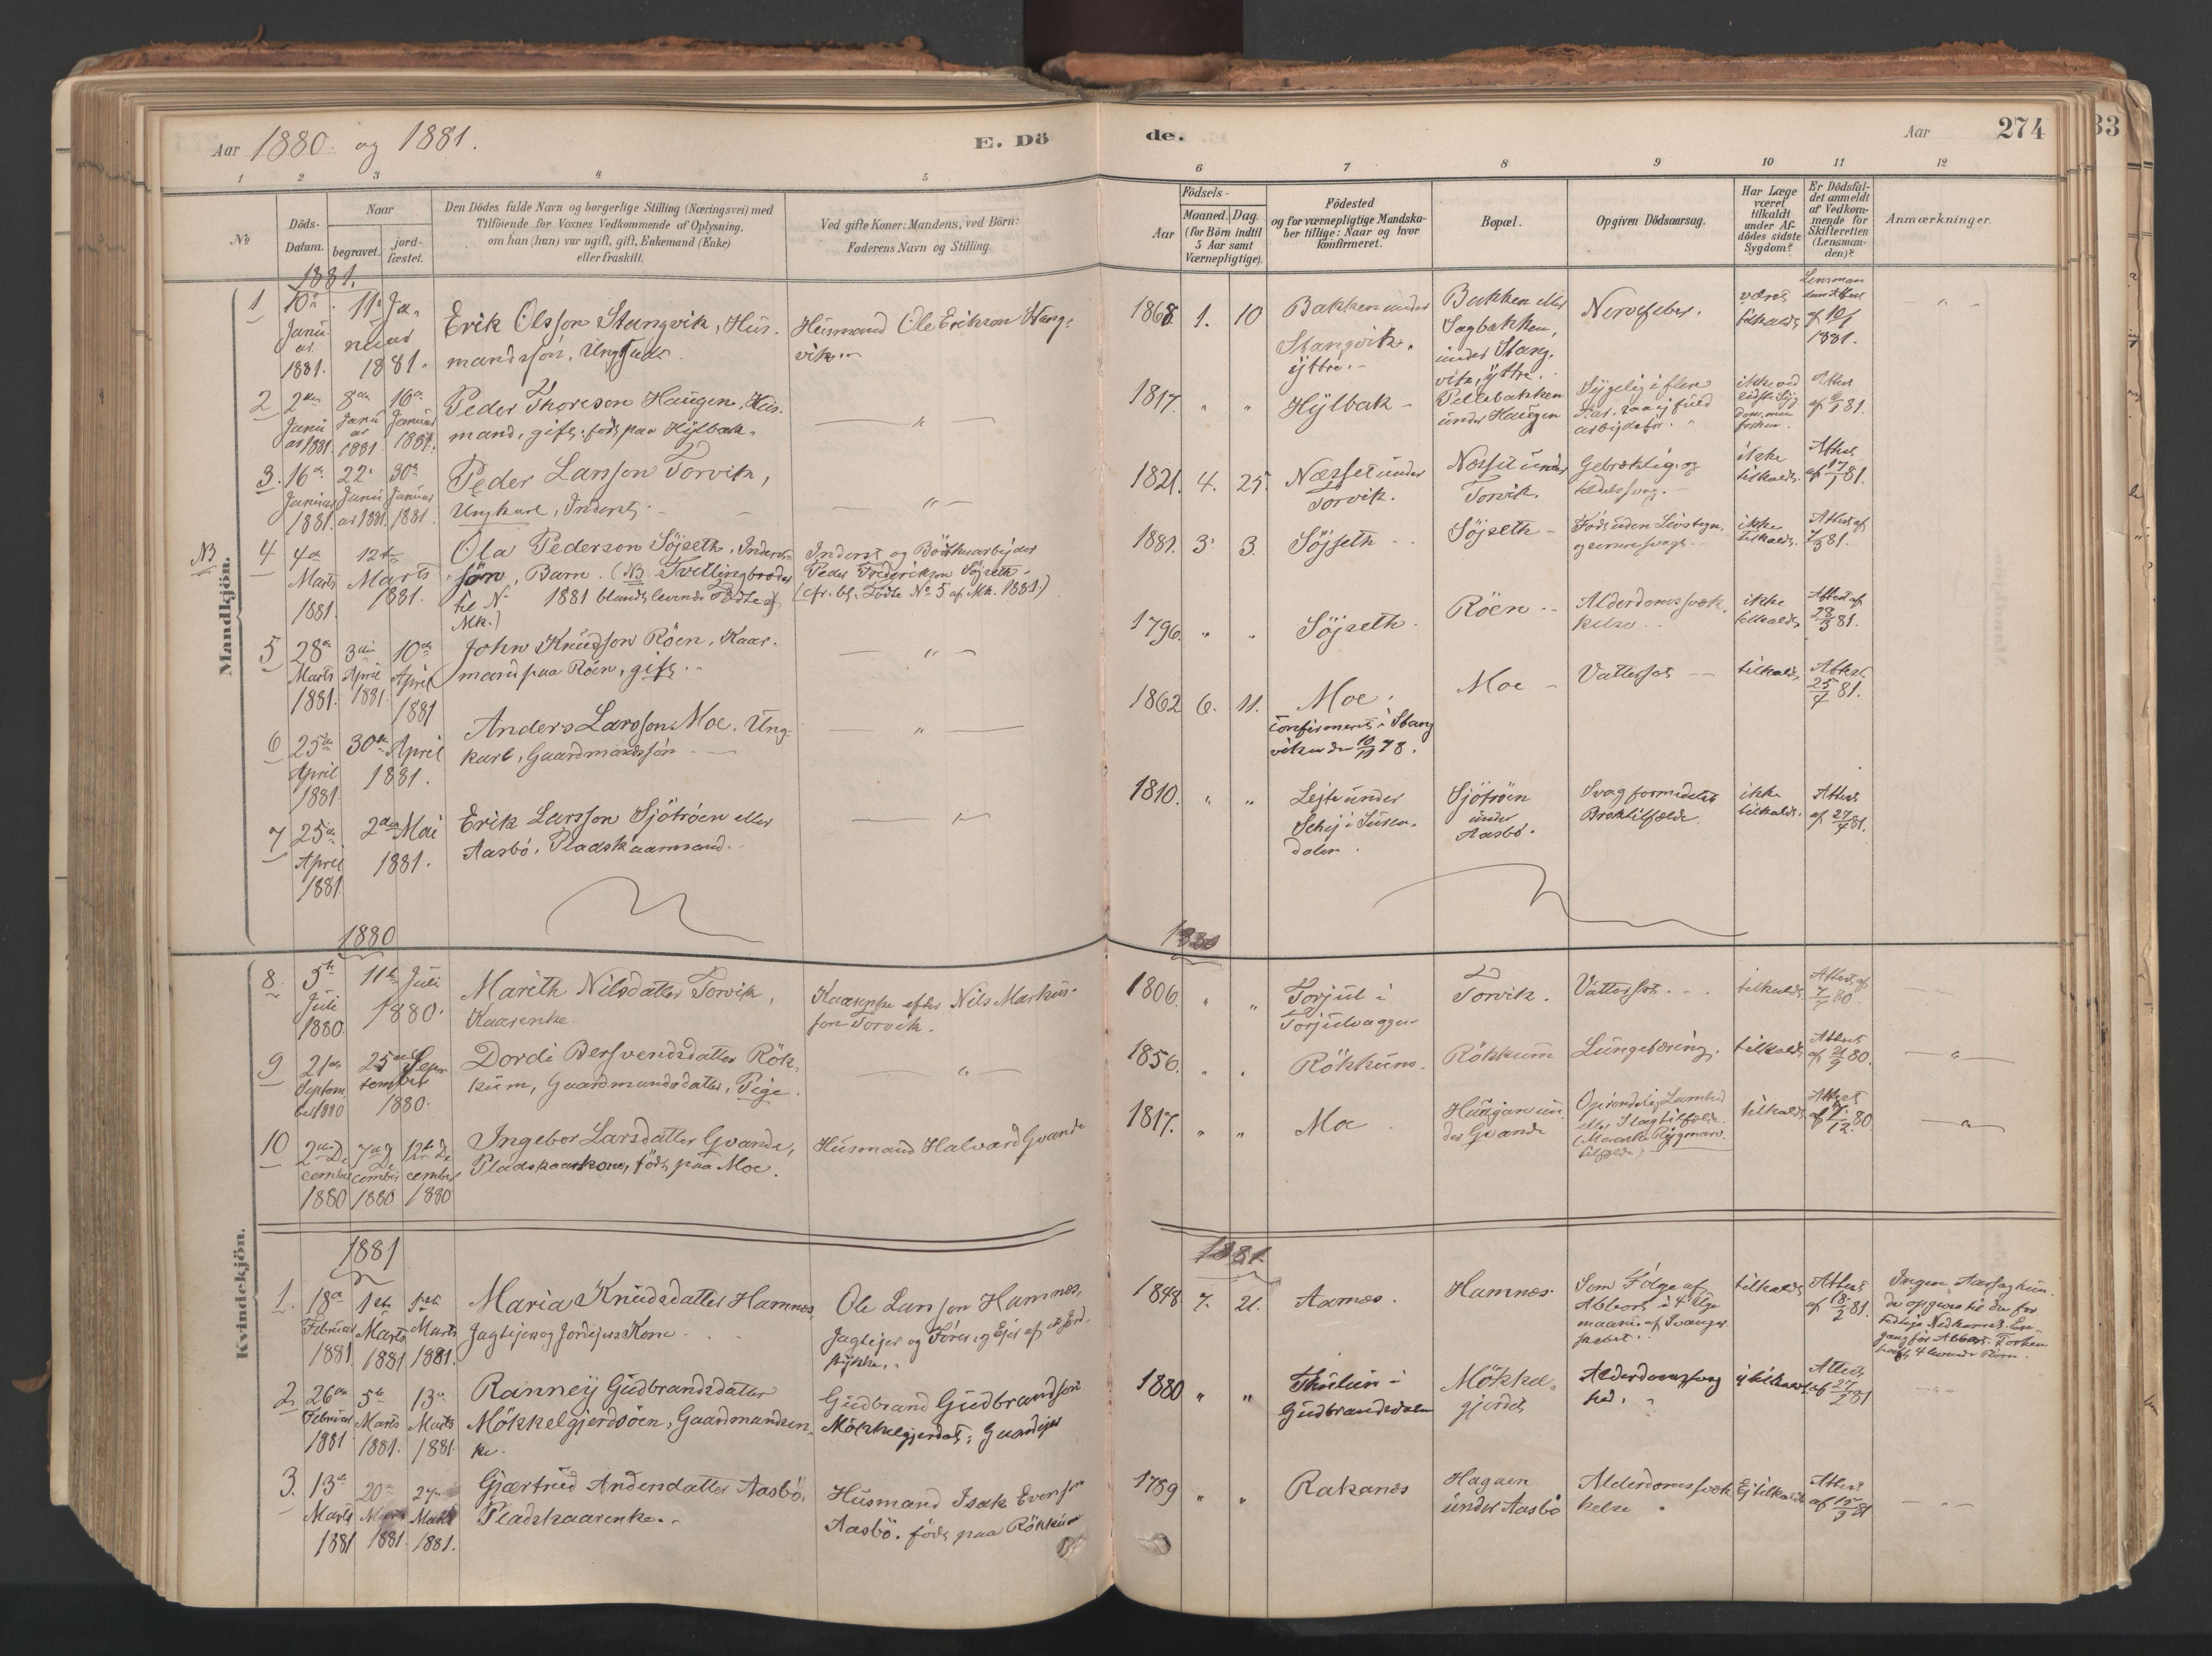 Aar 1880 og 1881.
E. Dö
de.
Aar
274
33
1 2 3 4 5 6 7 8 9 10 11 12
No
Döds-
Datum.
Naar
begravet.
jord-
fæstet.
Den Dödes fulde Navn og borgerlige Stilling (Næringsvei) med
Tilföiende for Voxnes Vedkommende af Oplysning,
om han (hun) var ugift, gift, Enkemand (Enke)
eller fraskilt.
Ved gifte Koner: Mandens, ved Börn:
Faderens Navn og Stilling.
Födsels-
Aar
Maaned. Dag.
(for Börn indtil
5 Aar samt
Værnepligtige).
Födested
og for værnepligtige Mandska-
ber tillige: Naar og hvor
konfirmeret.
Bopæl.
Opgiven Dödsaarsag.
Har Læge
været
tilkaldt
under Af-
dödes sidste
Sygdom?
Er Dödsfal-
det anmeldt
af Vedkom-
mende for
Skifteretten
(Lensman-
den)?
Anmærkninger.
Mandkjön.
1881.
1
10de
Janu
ar
1881.
11te Ja-
nuar
1881.
Erik Olsson Stangvik, Hus-
mandssön, Ung
Husmand Ole Erikson Stang-
vik.
1868 1. 10
Bakken under
Stangvik,
yttre.
Bakken eller
Sagbakken,
under Stang-
vik, yttre.
Nervefeber.
været
tilkaldt
Lensman
af 10/1
1881.
2
2den
Janu
ar 1881
8de
Janu
ar
1881
16de
Januar
1881.
Peder Thoreson Haugen, Hus-
mand, gift, född paa Hylbak.
1817. " "
Hylbak
Pellebakken
under Haugen
Sygelig i flere
Aar,
ikke ved
sidste Syg
dom, men
forhen.
Attest
81.
3.
16de
Januar
1881.
22de
Janu
ar 1881
30te
Januar
1881.
Peder Larsson Torvik,
Ungkarl, Inderst
1821. 4. 25.
Næsset under
Torvik.
Næsset under
Torvik.
Gebrækelig og
ikke
tilkaldt.
Attest
af 17/1 81.
NB
4
4de
Marts
1881.
12te
Marts
1881.
Ola Pederson Söjseth, Inderst-
sön, Barn. (NB Tvillingbroder
til No 1881 blandt levende Födte af
Mk.)
Inderst og
Peder Frederikson Söjseth
(cfr. bl. Födte No 5 af Mk. 1881.)
1881. 3 3
Söjseth
Söjseth
Födt uden Livstegn
ikke
tilkaldt.
Attest af
7/3 81.
5
28de
Marts
1881.
3die
April
1881.
10de
April
1881
John Knudson Röen, Kaar-
mand paa Röen, gift.
1796. " "
Söjseth.
Röen
Alderdomssvæk-
kelse
ikke
tilkaldt
Attest af
28/3 81.
6
25de
April
1881.
30te April
1881.
Anders Larsson Moe, Ung-
karl, Gaardmandssön
1862 6. 11.
Moe.
Confirmeret i Stang
viken den 10/11 78.
Moe
Vattersot
tilkaldt
Attest
25/4 81.
7
25de
April
1881
2den Mai
1881.
Erik Larsson Sjötröen eller
Aasbö, Pladskaarmand.
1810. " "
Lejte under
Schej i Suren-
dalen.
Sjötröen
under
Aasbö.
Svag formedelst
Broktilfælde.
ikke
tilkaldt.
Attest
af 27/4 81.
Kvindekjön.
1880
1880
8.
5te
Juli
1880.
11te Juli
1880.
Marith Nilsdatter Torvik,
Kaarenke.
Kaarenke efter Nils Markus-
son Torvik.
1806. " "
Torjul i
Torjulvaagen
Torvik.
Vattersot.
tilkaldt
Attest af
7/7 80.
9
21de
Septem
ber 1880
25de Sep-
tember
1880.
Dordi Bersvendsdatter Rök-
kum, Gaardmandsdatter, Pige.
1856. " "
Rökkum.
Rökkum
Lungetæring.
tilkaldt
Attest
af 21/9 80.
10
2den De
cember
1880
7de De
cember
1880
12te De
cember
1880
Ingebor Larsdatter Gvande,
Pladskaarkone, födt paa Moe.
Husmand Halvard Gvande
1817. " "
Moe
Haugan un-
der Gvande
eller Slagtilfælde.
tilfælde)
tilkaldt
Attest
80
1881
1881
1.
18de
Februar
1881
1ste
Marts
1881
1ste
Marts
1881.
Maria Knudsdatter Hamnes,
Jagtejer og Jordejers Kone
Ole Larsson Hamnes,
Jagtejer og Förer og Ejer af et Jord-
stykke.
1848 7. 21.
Aarnes.
Hamnes
Som Fölge af
Abbort i 4de Uge
af Svanger
skabet.
tilkaldt
Attest
af 18/2 81.
Ingen Aarsag kun-
de opgives til den for
tidlige Nedkomst. En
gang för Abbort. Forhen
havt 4 levende Börn.
2
26de
Februar
1881
5te
Marts
1881.
13de
Marts
1881.
Ranney Gudbrandsdatter
Mökkelgjerdsöen, Gaardmandsen-
ke.
Gudbrand Gudbrandson
Mökkelgjerdet, Gaardejer
1880 " "
i
Gudbrandsdalen
Mökkel-
gjerdet
Alderdomssvag
hed.
ej tilkaldt
Attest
af 27/2 81
3.
13de
Marts
1881
20de
Marts
1881.
27de
Marts
1881.
Gjærtrud Andersdatter Aasbö,
Pladskaarenke.
Husmand Isak Evenson
Aasbö. födt paa Rökkum
1789 " "
Rakanes
Hagaen
under Aasbö
Alderdomssvæk
kelse
Ej tilkaldt
Attest
af 15/3 81